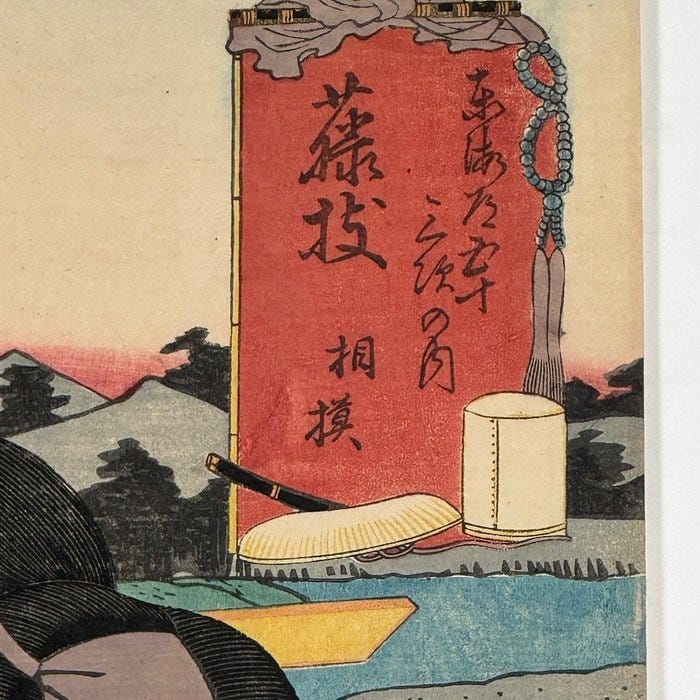 東海道五十
三次の内
藤枝
相模